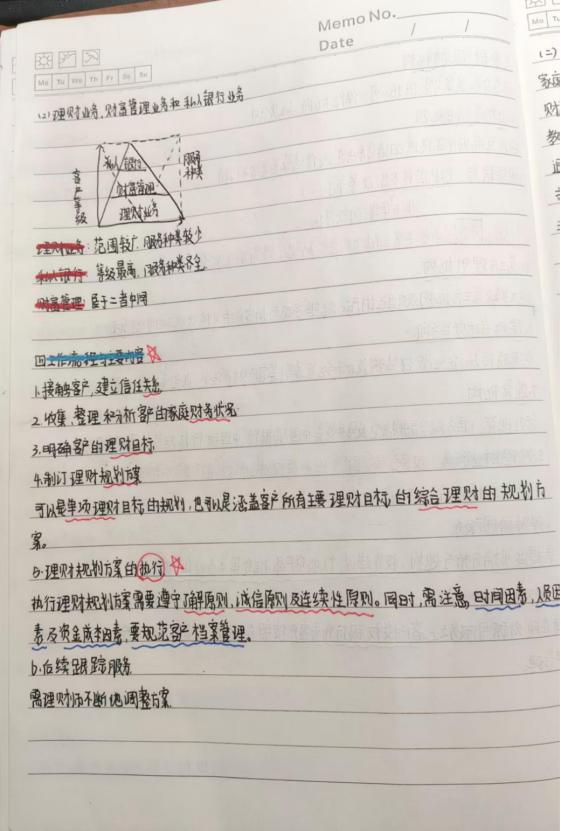 Memo No.
Date / /
Mo Tu We Th Fr Sa Su
(2)理财业务、财富管理业务和私人银行业务
私人银行
财富管理
理财业务
客户等级
服务种类
理财业务:范围较广,服务种类较少
私人银行 等级最高,服务种类齐全
财富管理 居于二者中间
四工作流程与主要内容
1.接触客户,建立信任关系
2.收集、整理和分析客户的家庭财务状况
3.明确客户的理财目标
4.制订理财规划方案
可以是单项理财目标的规划,也可以是涵盖客户所有主要理财目标的综合理财的规划方
案。
5.理财规划方案的执行
执行理财规划方案需要遵守了解原则,诚信原则及连续性原则。同时,需注意,时间因素,人员因
素及资金成本因素,要规范客户档案管理。
6.后续跟踪服务
需理财师不断地调整方案
Mo Tu
(二)
家庭
财
教